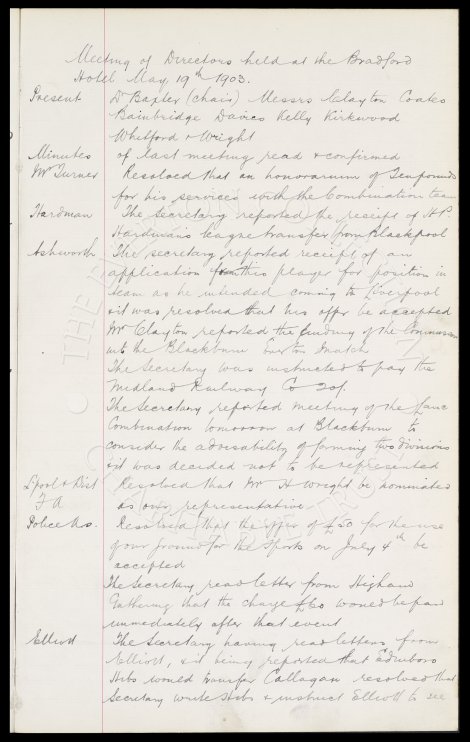 Meeting of Directors held at the Bradford
Hotel May 19th 1903.
Present Dr Baxter (chair) Messrs Clayton Coates
Bainbridge Davies Kelly Kirkwood
Whitford & Wright
Minutes of last meeting read & confirmed
Mr Turner Resolved that an honorarium of Ten pounds
for his services with the Combination team
Hardman The Secretary reported the receipt of H.P.
Hardman's league transfer from Blackpool
Ashworth The secretary reported receipt of an
application this player for position in
team as he intended coming to Liverpool
& it was resolved that his offer be accepted
Mr Clayton reported the finding of the Commission
into the Blackburn Everton Match
The Secretary was instructed to pay the
Midland Railway Co 20/.
The Secretary reported meeting of the Lanc
Combination tomorrow at Blackburn to
consider the advisability of forming two divisions
& it was decided not to be represented
L'pool & Dist Resolved that Mr H Wright be nominated
F A as our representative
Police Ars. Resolved that the offer of £50 for the use
of our ground for the Sports on July 4th be
accepted
The Secretary read letter from Highland
Gathering that the charge £60 would be paid
immediately after that event
Elliott The Secretary having read letters from
Elliott, & it being reported that Edinboro
Hibs would transfer Callagan resolved that
Secretary write Hibs & instruct Elliott to see